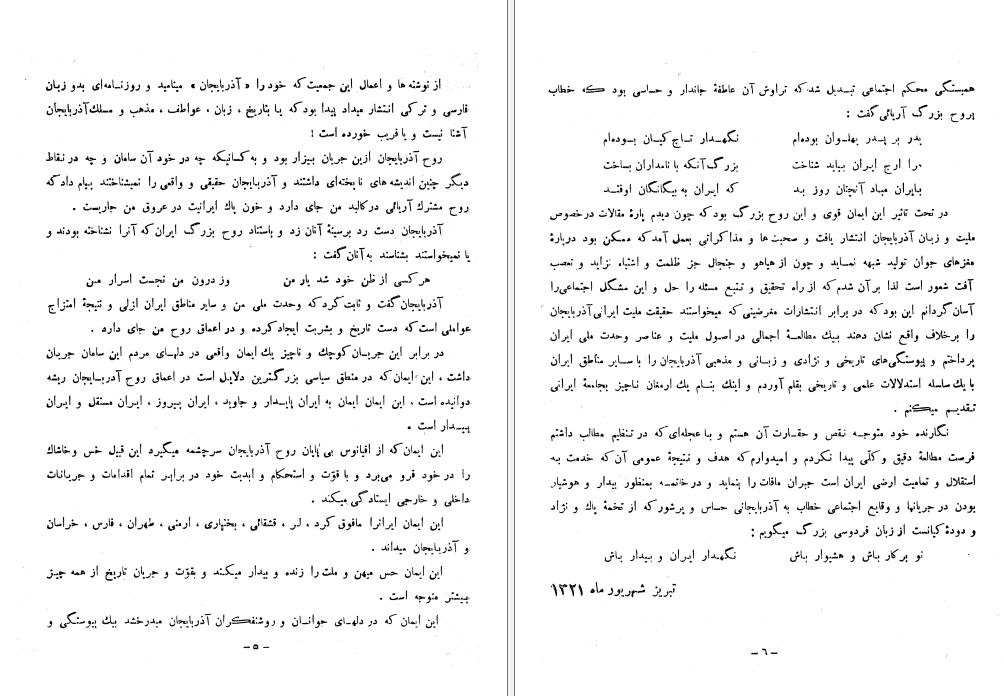 از نوشته ها و اعمال این جمعیت که خود را « آذربایجان » مینامید و روزنامه‌ای بدو زبان
فارسی و ترکی انتشار میداد پیدا بود که با بتاریخ ، زبان ، عواطف ، مذهب و مسلك آذربایجان
آشنا نیست و یا فریب خورده است !
روح آذربایجان ازین جریان بیزار بود و به کسانیکه چه در خود آن سامان و چه در نقاط
دیگر چنین اندیشه های ناپخته‌ای داشتند و آذربایجان حقیقی و واقعی را نمیشناختند پیام داد که
روح مشترك آریائی در کالبد من جای دارد و خون پاك ایرانیت در عروق من جاریست .
آذربایجان دست رد برسینهٔ آنان زد و باستناد روح بزرگ ایران که آنرا نشناخته بودند و
یا نمیخواستند بشناسند به آنان گفت :
هر کسی از ظن خود شد یار من وز درون من نجست اسرار من
آذربایجان گفت و ثابت کرد که وحدت ملی من و سایر مناطق ایران ازلی و نتیجهٔ امتزاج
عواملی است که دست تاریخ و بشریت ایجاد کرده و در اعماق روح من جای دارد .
در برابر این جریان کوچك و ناچیز یك ایمان واقعی در دلهای مردم این سامان جریان
داشت ، این ایمان که در منطق سیاسی بزرگترین دلایل است در اعماق روح آذربایجان ریشه
دوانیده است ، این ایمان ایمان به ایران پایدار و جاوید ، ایران پیروز ، ایران مستقل و ایران
بیدار است .
این ایمان که از اقیانوس بی پایان روح آذربایجان سرچشمه میگیرد این قبیل خس وخاشاك
را در خود فرو می‌برد و با قوّت و استحکام و ابدیت خود در برابر تمام اقدامات و جریانات
داخلی و خارجی ایستادگی میکند .
این ایمان ایرانرا مافوق کرد ، لر ، قشقائی ، بختیاری ، ارمنی ، طهران ، فارس ، خراسان
و آذربایجان میداند .
این ایمان حس میهن و ملت را زنده و بیدار میکند و بقوّت و جریان تاریخ از همه چیز
بیشتر متوجه است .
این ایمان که در دلهای جوانان و روشنفکران آذربایجان میدرخشد بیك پیوستگی و
- ۵ -
همبستگی محکم اجتماعی تبدیل شد که تراوش آن عاطفهٔ جاندار و حساسی بود که خطاب
بروح بزرگ آریائی گفت :
پدر بر پدر پهلوان بوده‌ام نگهدار تاج کیان بوده‌ام
مرا ارج ایران بباید شناخت بزرگ آنکه با نامداران بساخت
بایران مباد آنچنان روز بد که ایران به بیگانگان اوفتد
در تحت تاثیر این ایمان قوی و این روح بزرگ بود که چون دیدم پارهٔ مقالات در خصوص
ملیت و زبان آذربایجان انتشار یافت و صحبت ها و مذاکراتی بعمل آمد که ممکن بود دربارهٔ
مغزهای جوان تولید شبهه نماید و چون از هیاهو و جنجال جز ظلمت و اشتباه نزاید و تعصب
آفت شعور است لذا بر آن شدم که از راه تحقیق و تتبع مسئله را حل و این مشکل اجتماعی‌را
آسان گردانم این بود که در برابر انتشارات مغرضینی که میخواستند حقیقت ملیت ایرانی آذربایجان
را برخلاف واقع نشان دهند بیك مطالعهٔ اجمالی در اصول ملیت و عناصر وحدت ملی ایران
پرداختم و پیوستگی‌های تاریخی و نژادی و زبانی و مذهبی آذربایجان را با سایر مناطق ایران
با یك سلسله استدلالات علمی و تاریخی بقلم آوردم و اینك بنام یك ارمغان ناچیز بجامعهٔ ایرانی
تقدیم میکنم .
نگارنده خود متوجه نقص و حقارت آن هستم و با عجله‌ای که در تنظیم مطالب داشتم
فرصت مطالعهٔ دقیق و کلّی پیدا نکردم و امیدوارم که هدف و نتیجهٔ عمومی آن که خدمت به
استقلال و تمامیت ارضی ایران است جبران مافات را بنماید و در خاتمه بمنظور بیدار و هوشیار
بودن در جریانها و وقایع اجتماعی خطاب به آذربایجانی حساس و پرشور که از تخمهٔ پاك و نژاد
و دودهٔ کیانست از زبان فردوسی بزرگ میگویم :
تو بر کار باش و هشیوار باش نگهدار ایران و بیدار باش
تبریز شهریور ماه ۱۳۲۱
- ٦ -